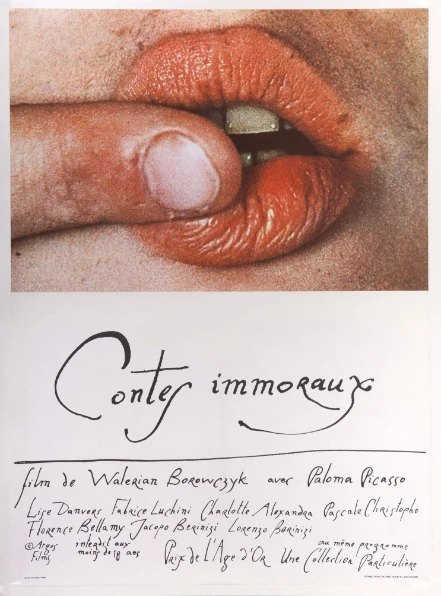 Contes immoraux
film de Walerian Borowczyk avec Paloma Picasso
Lise Danvers Fabrice Luchini Charlotte Alexandra Pascale Christophe
Florence Bellamy Jacopo Berinizi Lorenzo Berinizi
© Argos Films
interdit aux moins de 18 ans
Prix de L'Age d'Or
au même programme
Une Collection Particulière